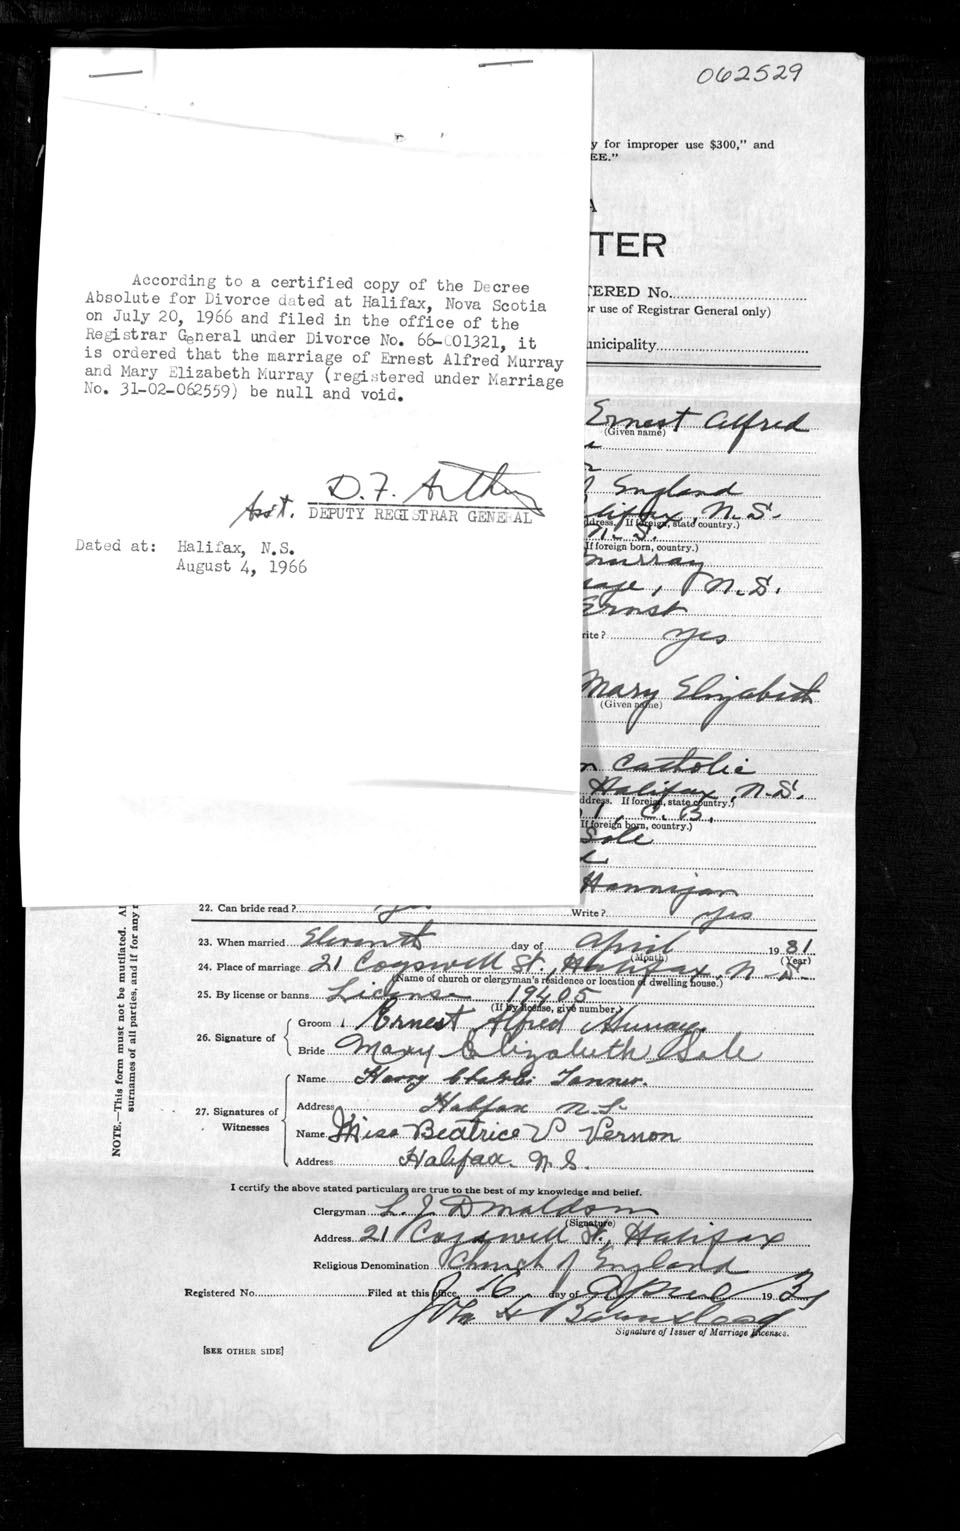 062529
y for improper use $300," and
EE."
A
TER
TERED No.
or use of Registrar General only)
unicipality
According to a certified copy of the Decree
Absolute for Divorce dated at Halifax, Nova Scotia
on July 20, 1966 and filed in the office of the
Registrar General under Divorce No. 66-001321, it
is ordered that the marriage of Ernest Alfred Murray
and Mary Elizabeth Murray (registered under Marriage
No. 31-02-062559) be null and void.
D. F. Arthur
Asst. DEPUTY REGISTRAR GENERAL
Dated at: Halifax, N.S.
August 4, 1966
Ernest Alfred
(Given name)
f England
lifax, N.S.
ddress. If foreign, state country.)
N.S.
If foreign born, country.)
Murray
N.S.
Ernst
rite? yes
Mary Elizabeth
(Given name)
n Catholic
Halifax, N.S.
ddress. If foreign, state country.)
C. B.
If foreign born, country.)
Sole
Hannigan
22. Can bride read? yes Write? yes
23. When married Eleventh day of April 1931
(Month) (Year)
24. Place of marriage 21 Cogswell St., Halifax, N.S.
(Name of church or clergyman's residence or location of dwelling house.)
25. By license or banns License 19405
(If by license, give number.)
26. Signature of
Groom Ernest Alfred Murray.
Bride Mary Elizabeth Sole
27. Signatures of Witnesses
Name Harry Tanner.
Address Halifax N.S.
Name Miss Beatrice V Vernon
Address Halifax. N.S.
I certify the above stated particulars are true to the best of my knowledge and belief.
Clergyman L. J. Donaldson
(Signature)
Address 21 Cogswell St., Halifax
Religious Denomination Church of England
Registered No. Filed at this office 16 day of April 1931
John H Barnstead
Signature of Issuer of Marriage Licenses.
[SEE OTHER SIDE]
NOTE.—This form must not be mutilated. Al
surnames of all parties, and if for any r